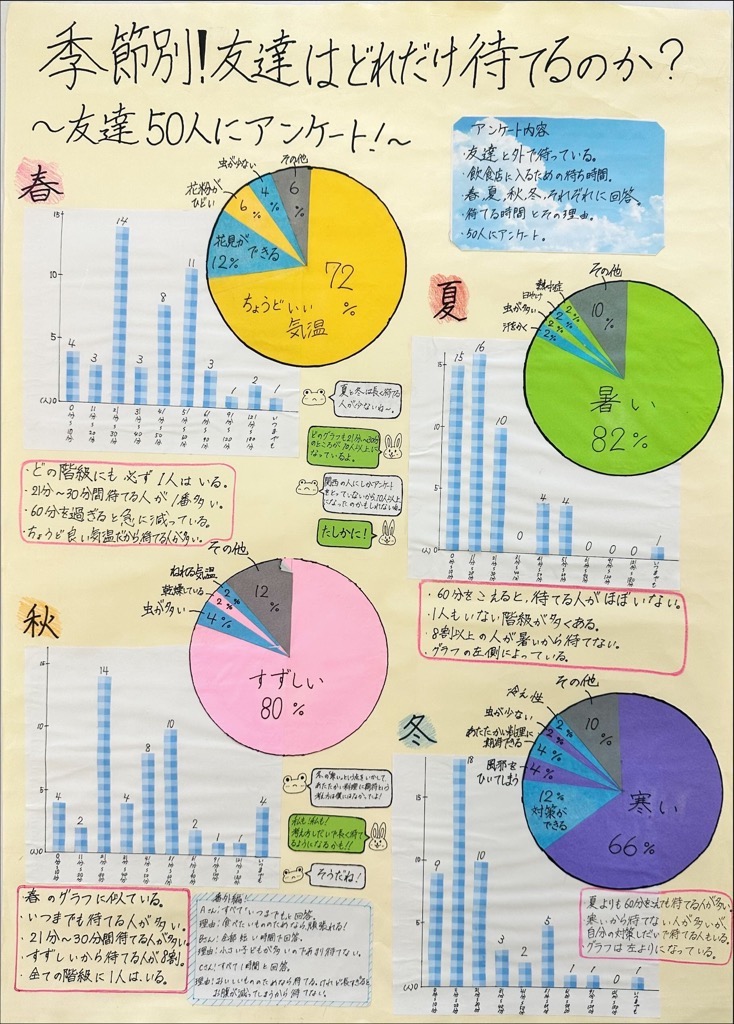 季節別！友達はどれだけ待てるのか？
～友達50人にアンケート！～
アンケート内容
・友達と外で待っている。
・飲食店に入るための待ち時間。
・春、夏、秋、冬、それぞれに回答。
・待てる時間とその理由。
・50人にアンケート。
春
15
10
5
(人)0
4
3
14
3
8
11
3
1
2
1
いつまでも
虫が少ない
4%
その他
6%
花粉がひどい
6%
花見ができる
12%
72%
ちょうどいい気温
・どの階級にも必ず1人はいる。
・21分～30分間待てる人が1番多い。
・60分を過ぎると急に減っている。
・ちょうど良い気温だから待てる人が多い。
夏と冬は長く待てる
人が少ないね～。
どのグラフも21分～30分
のところが、10人以上に
なっているよ。
関西の人にしかアンケート
をとっていないから10人以上
になったのかもしれないね。
たしかに！
夏
15
10
5
(人)0
15
16
10
0
4
4
0
0
0
1
いつまでも
その他
10%
熱中症
2%
日やけ
2%
虫が多い
2%
汗をかく
2%
暑い
82%
・60分をこえると、待てる人がほぼいない。
・1人もいない階級が多くある。
・8割以上の人が暑いから待てない。
・グラフの左側によっている。
秋
15
10
5
(人)0
4
2
14
4
8
10
2
1
1
4
いつまでも
その他
12%
ねれる気温
2%
乾燥している
2%
虫が多い
4%
すずしい
80%
・春のグラフに似ている。
・いつまでも待てる人が多い。
・21分～30分間待てる人が多い。
・すずしいから待てる人が8割。
・全ての階級に1人はいる。
冬の寒いという点をいかして
あたたかい料理に期待という
考え方は僕にはなかったよ！
私も！私も！
考え方しだいで長く待て
るようになるかも！！
そうだね！
番外編！
Aさん：すべて「いつまでも」と回答。
理由：食べたいもののためなら頑張れる！
Bさん：全部短い時間で回答。
理由：小さい子どもが多いのであまり待てない。
Cさん：すべて1時間と回答。
理由：おいしいもののためなら待てる。けれど長すぎると
お腹が減ってしまうから待てない。
冬
15
10
5
(人)0
9
18
10
3
2
5
1
1
0
1
いつまでも
その他
10%
冷え性
2%
虫が少ない
2%
あたたかい料理に
期待できる
4%
風邪を
ひいてしまう
4%
12%
対策が
できる
寒い
66%
・夏よりも60分以上でも待てる人が多い。
・寒いから待てない人が多いが、
自分の対策しだいで待てる人もいる。
・グラフは左よりになっている。